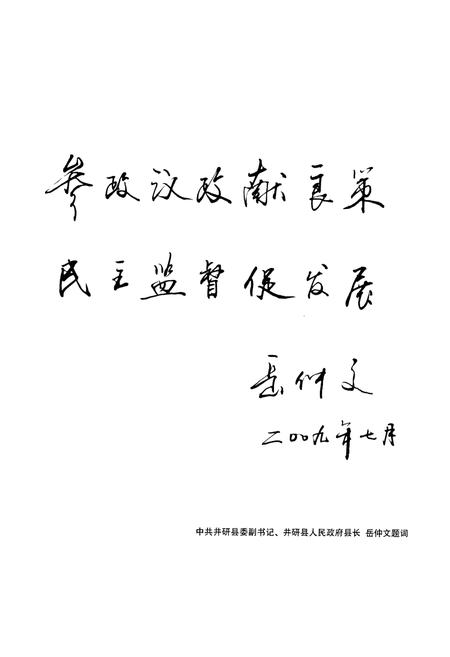 参政议政献良策
民主监督促发展
岳仲文
二〇〇九年七月
中共井研县委副书记、井研县人民政府县长 岳仲文题词